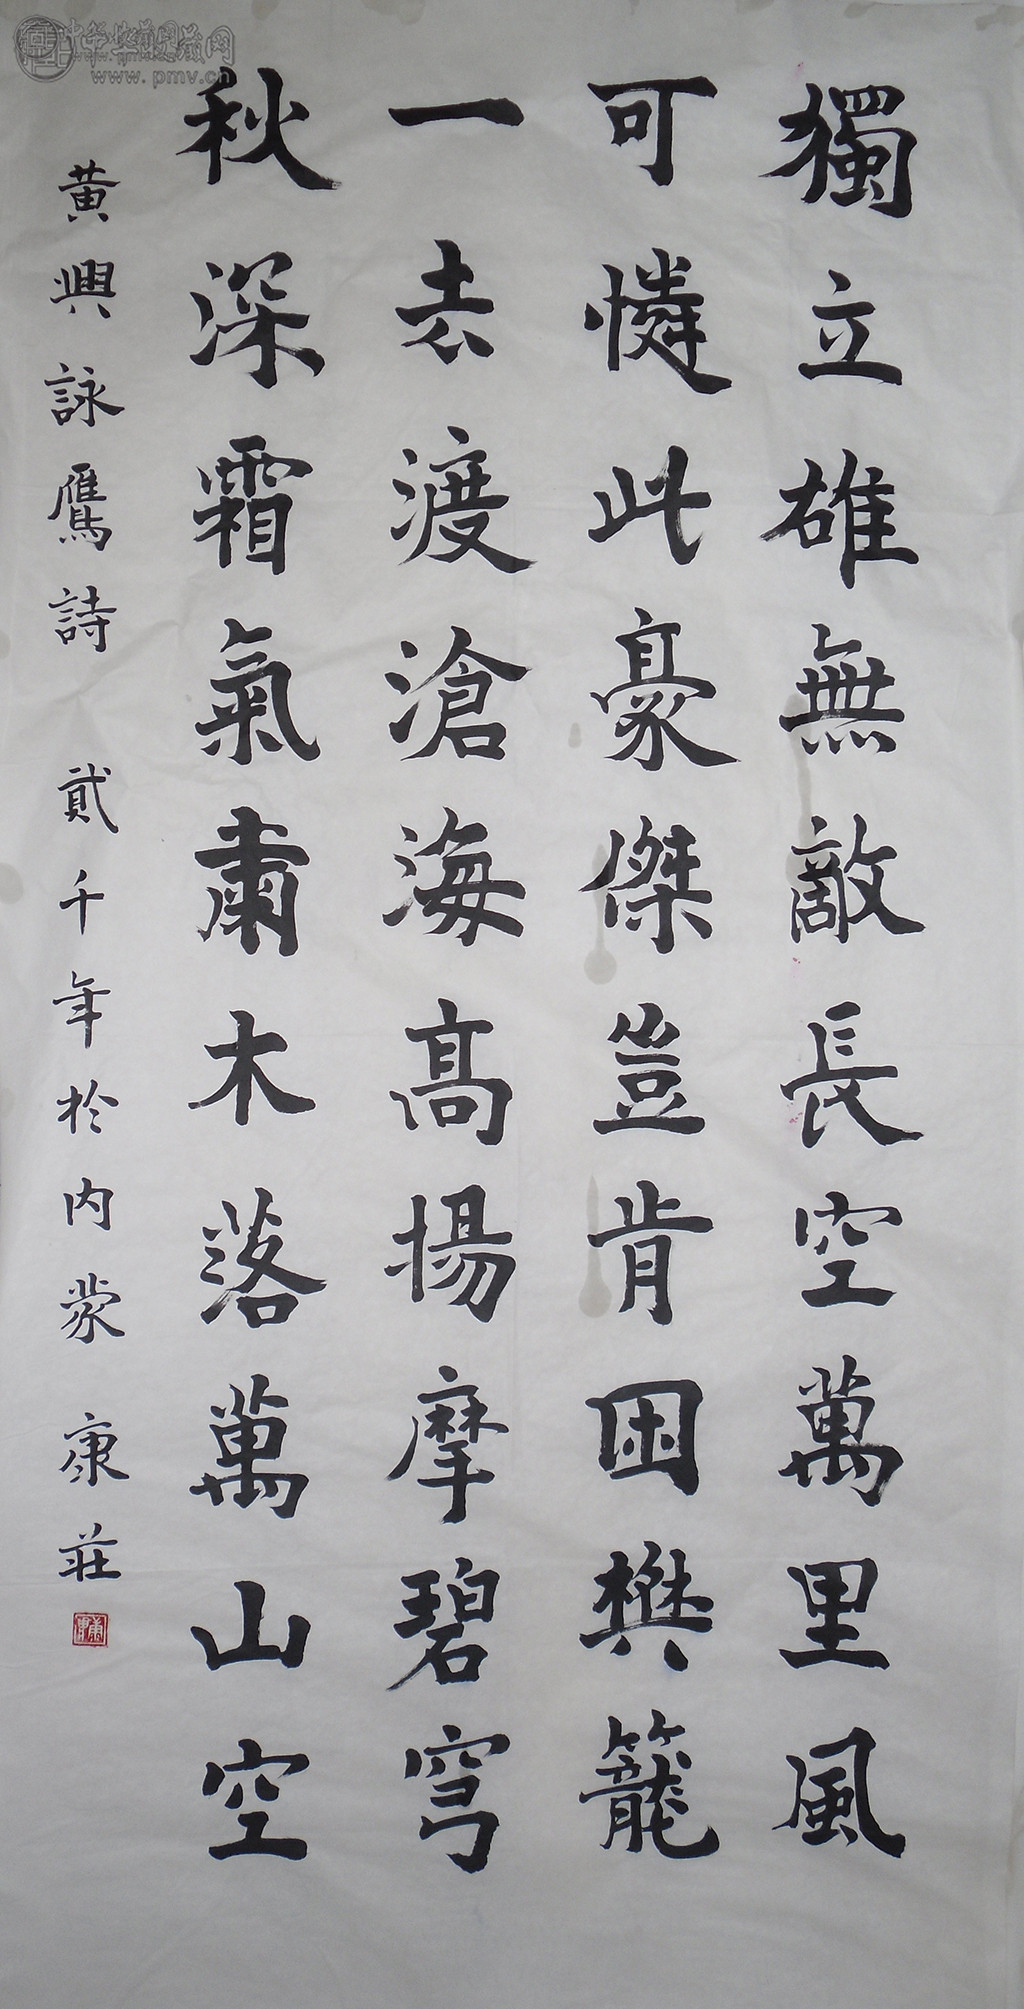 獨立雄無敵長空萬里風
可憐此豪傑豈肯困樊籠
一去渡滄海高揚摩碧穹
秋深霜氣肅木落萬山空
黄興詠鷹詩 貳千年於内蒙 康莊
www.pmv.cn